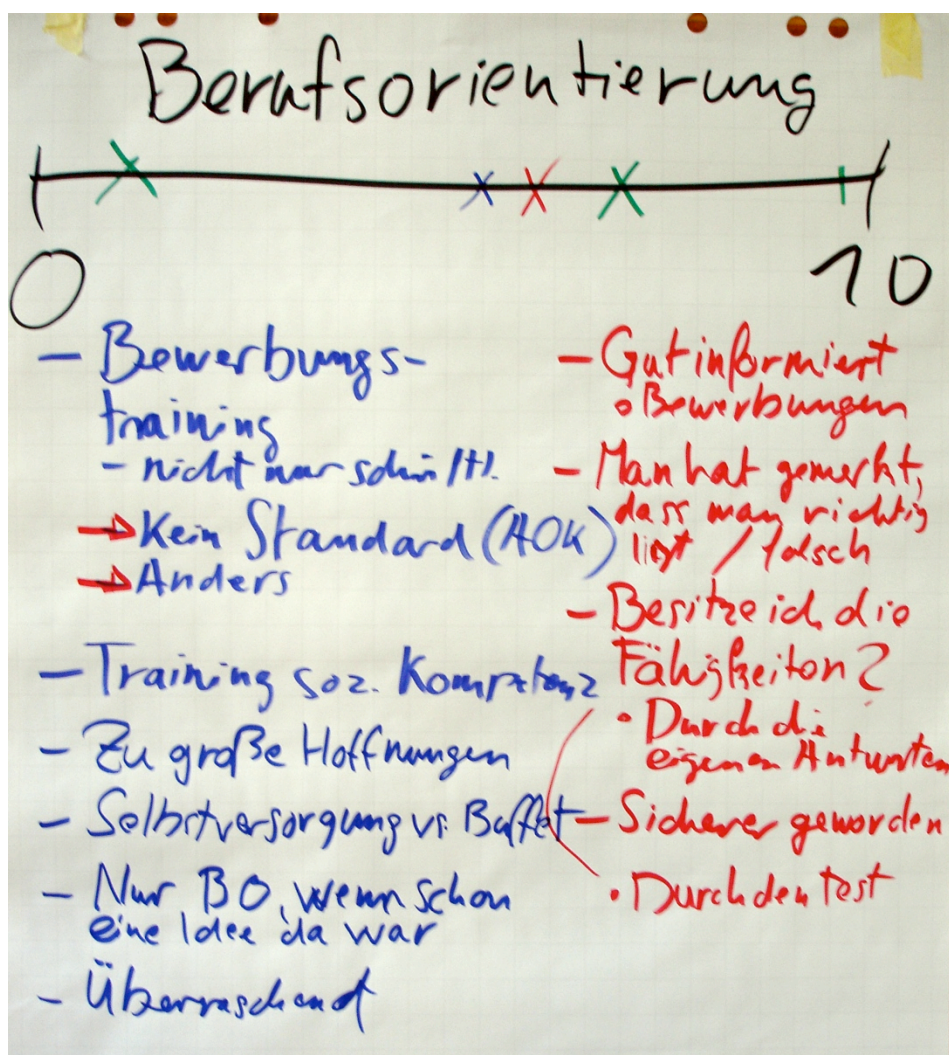 Berufsorientierung
0
10
– Bewerbungs-
training
– nicht nur schriftl.
Kein Standard (AOK)
Anders
– Training soz. Kompetenz
– Zu große Hoffnungen
– Selbstversorgung vs. Buffet
– Nur BO, wenn schon
eine Idee da war
– Überraschend
– Gut informiert
• Bewerbungen
– Man hat gemerkt,
dass man richtig
liegt / falsch
– Besitze ich die
Fähigkeiten?
• Durch die
eigenen Antworten
– Sicherer geworden
• Durch den Test